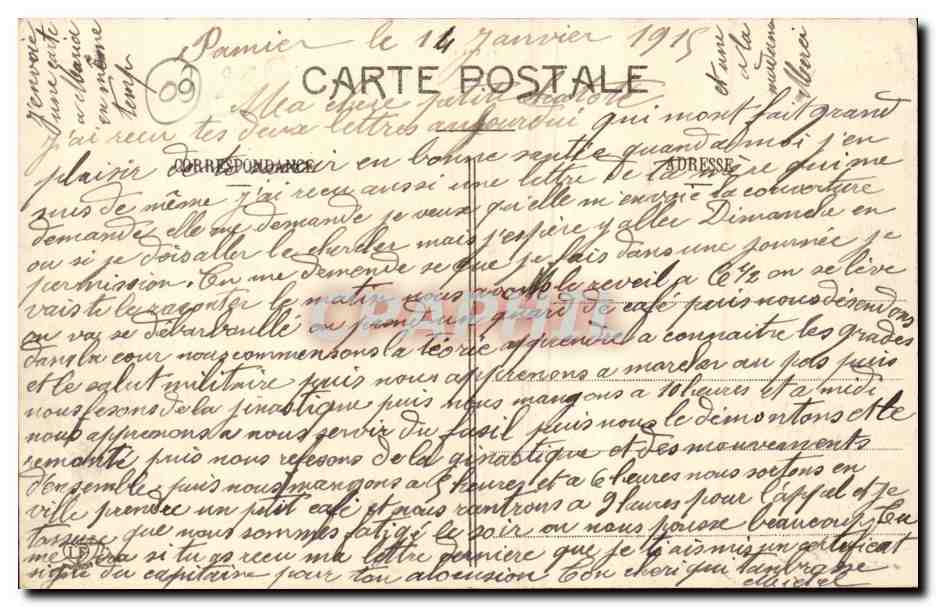 Pamier le 14 Janvier 1915
CARTE POSTALE
Ma chere petite
j'ai recu tes deux lettres aujourdui qui mont fait grand
CORRESPONDANCE
ADRESSE
plaisir de te savoir en bonne santée quand a moi j'en
suis de même j'ai recu aussi une lettre de ta mère qui me
demande elle me demande je veux qu'elle m'envoie la couverture
ou si je dois aller le chercher mais j'espère y aller Dimanche en
permission. Tu me demende se que je fais dans une journée je
vais te le raconter le matin nous avons le reveil a 6 ½ on se lève
on vas se débarbouillé on prend un quard de café puis nous désendons
dans la cour nous commensons la téorie apprendre a connaitre les grades
et le salut militaire puis nous apprenons a marcher au pas puis
nous fesons de la jinastique puis nous mangons a 10 heures et a midi
nous apprenons a nous servir du fusil puis nous le démontons et le
remonté puis nous refesons de la ginastique et des mouvements
d'ensemble puis nous mangons a 5 heures et a 6 heures nous sortons en
ville prendre un petit café et nous rantrons a 9 heures pour l'appel et je
tassure que nous sommes fatigé le soir on nous pousse beaucoup tu
me dira si tu as recu ma lettre derniere que je t'ais mis un certificat
signé du capitaine pour ton alocusion Ton cheri qui t'anbrasse
Michel
J'envoie
une carte
a Maria
en même
temp
et une
a la
Merci
09
CPAPHIL